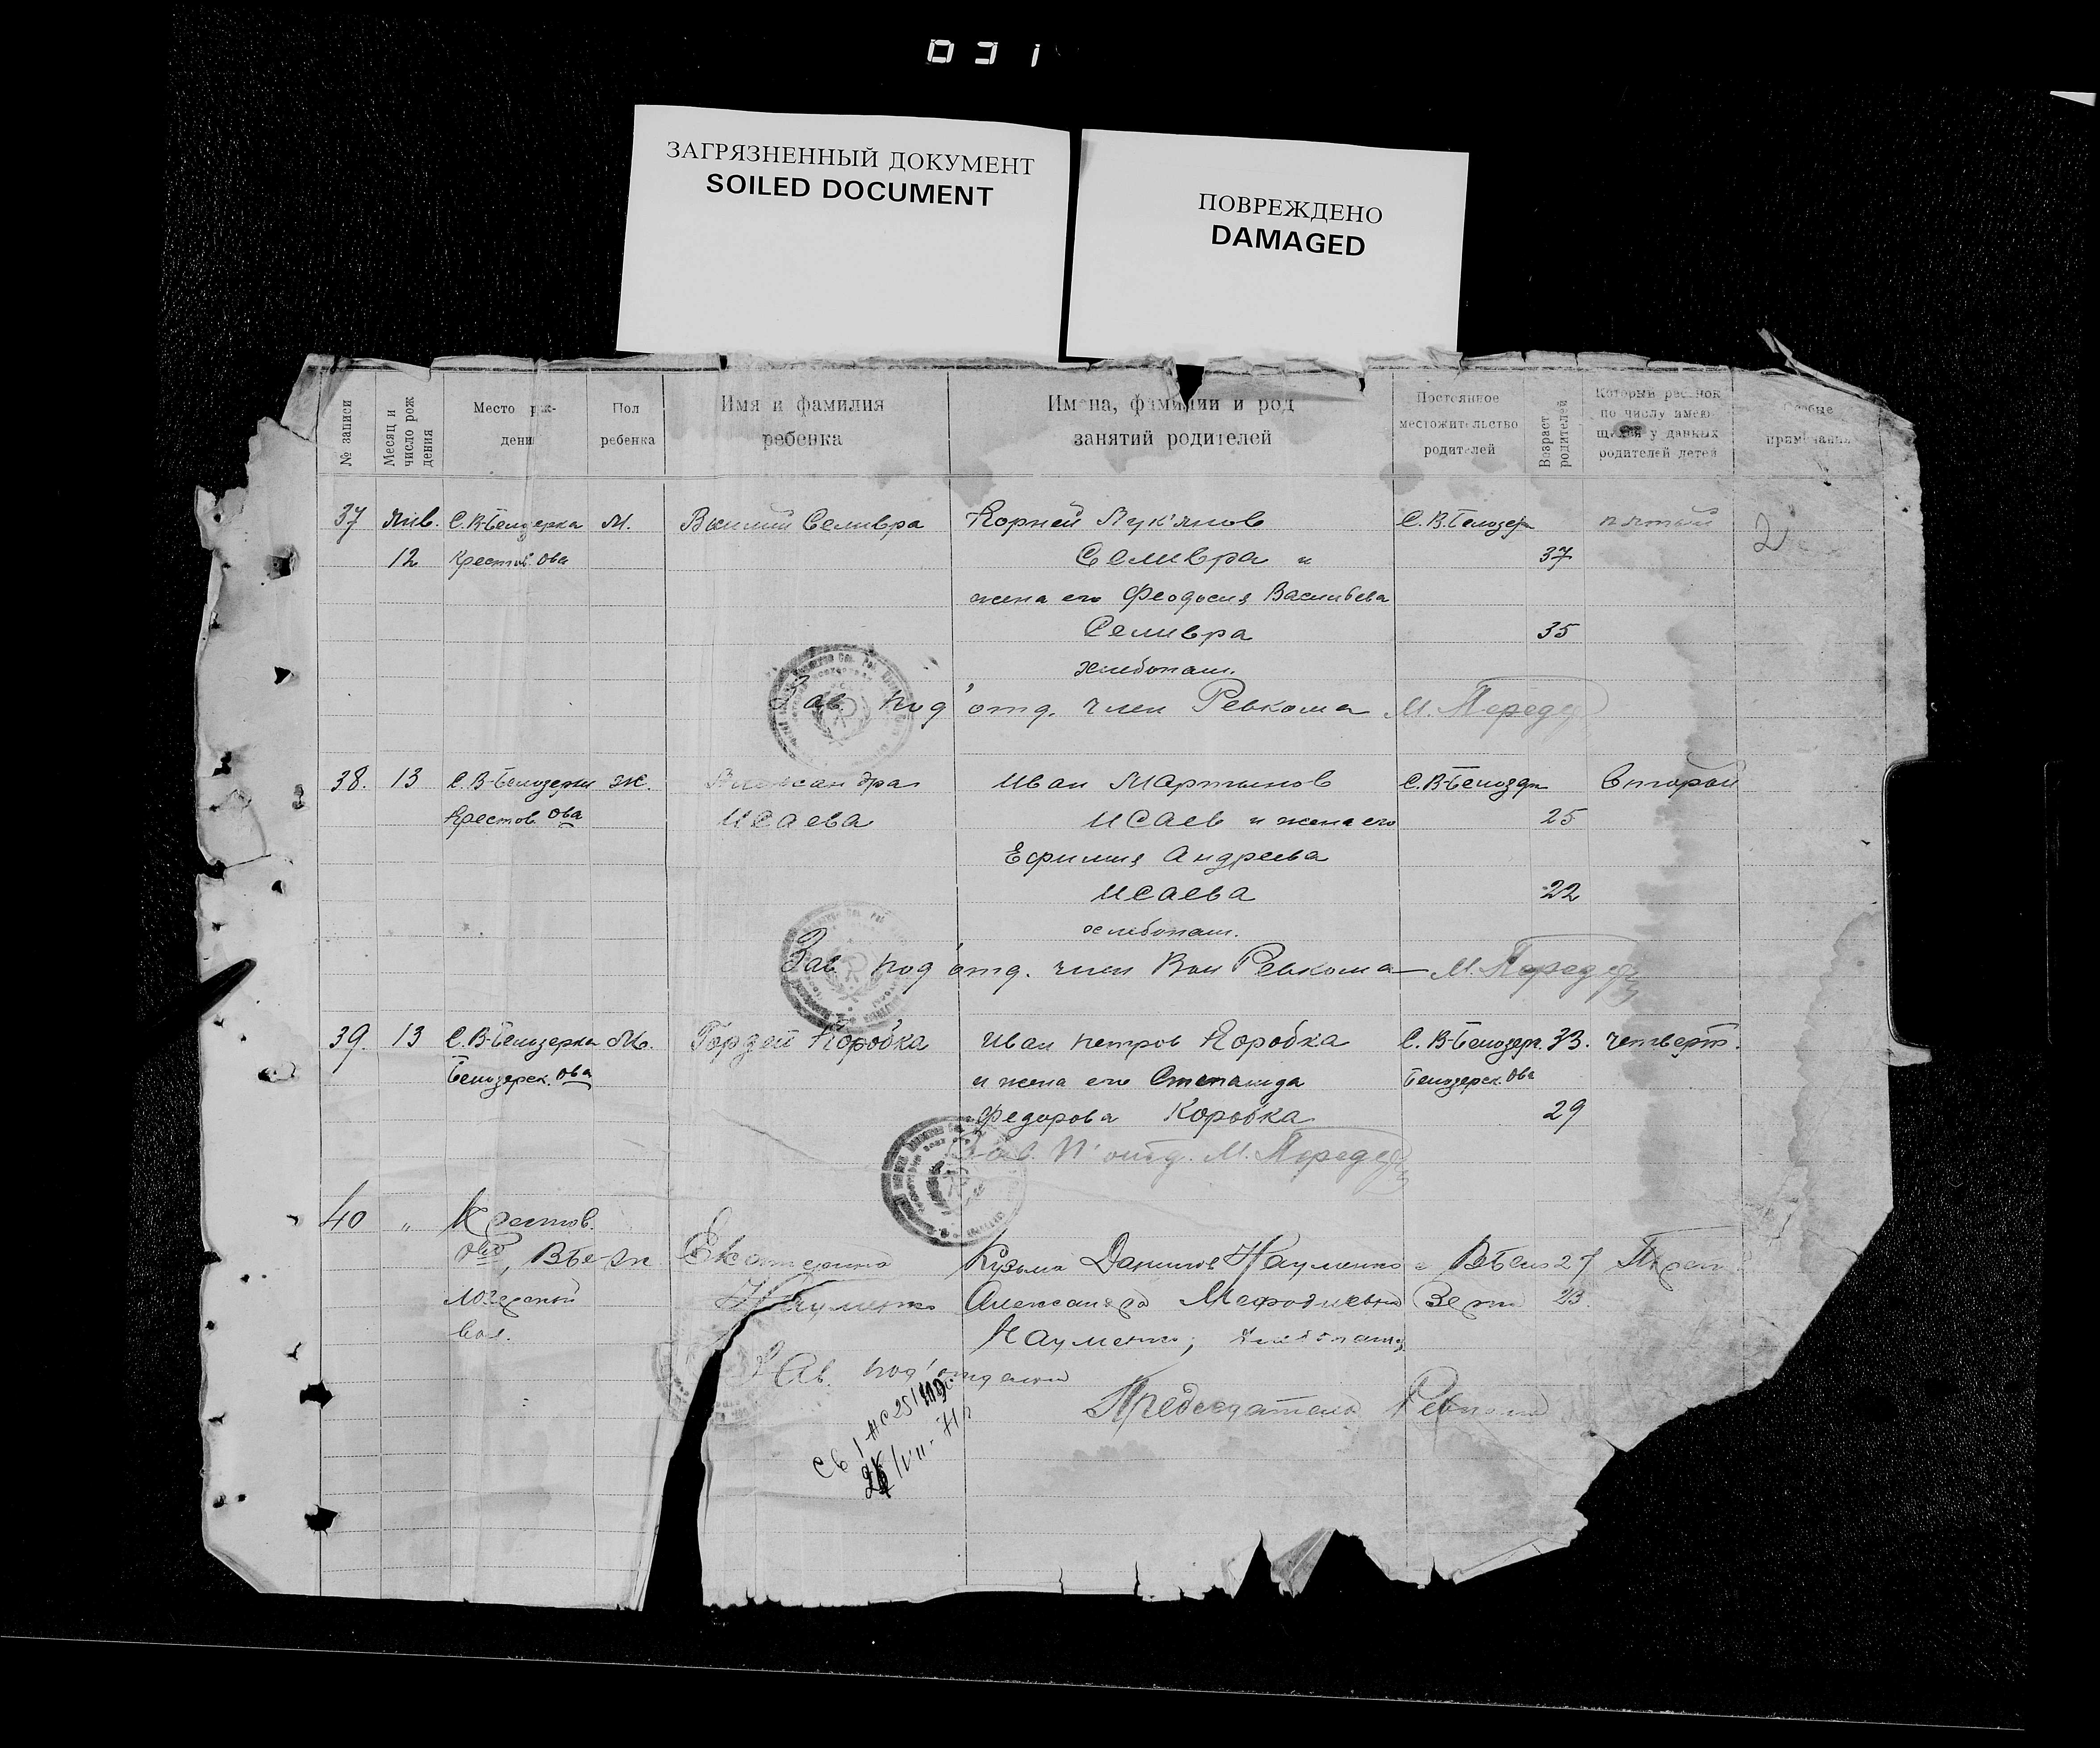 031
ЗАГРЯЗНЕННЫЙ ДОКУМЕНТ
SOILED DOCUMENT
ПОВРЕЖДЕНО
DAMAGED
№ записи
Месяц и число рождения
Место рождени
Пол ребенка
Имя и фамилия ребенка
Имена, фамилии и род занятий родителей
Постоянное местожительство родителей
Возраст родителей
Который ребенок по числу имеющихся у данных родителей детей
Особые примечания
37 Янв. С. В-Белозерка М. Василий Селивра Корней Лук'янов С. В. Белозер пятый
12 Крестов. ова Селивра и 37
жена его Феодосия Васильева
Селивра 35
хлебопаш.
Зав под'отд. член Ревкома М.
38. 13 С. В-Белозерки ж. Александра Иван Мартынов С. В-Белозер второй
Крестов. ова Исаева Исаев и жена его 25
Ефимия Андреева
Исаева 22
хлебопаш.
Зав под'отд. член Вол Ревкома М.
39. 13 С. В-Белозерка М. Гордей Коробка Иван Петров Коробка С. В-Белозер. 33. четверт.
Белозерск. ова и жена его Степанида Белозерск. ова
Федорова Коробка 29
Зав. п'отд. М.
40 " Крестов.
ова, В Бе- ж Екатерина Кузьма Данилов Науменко с В Бело 27
лозерской Науменко Александра Мефодиевна зерка 23.
вол. Науменко,
Зав. под'отделом
Председатель Ревкома